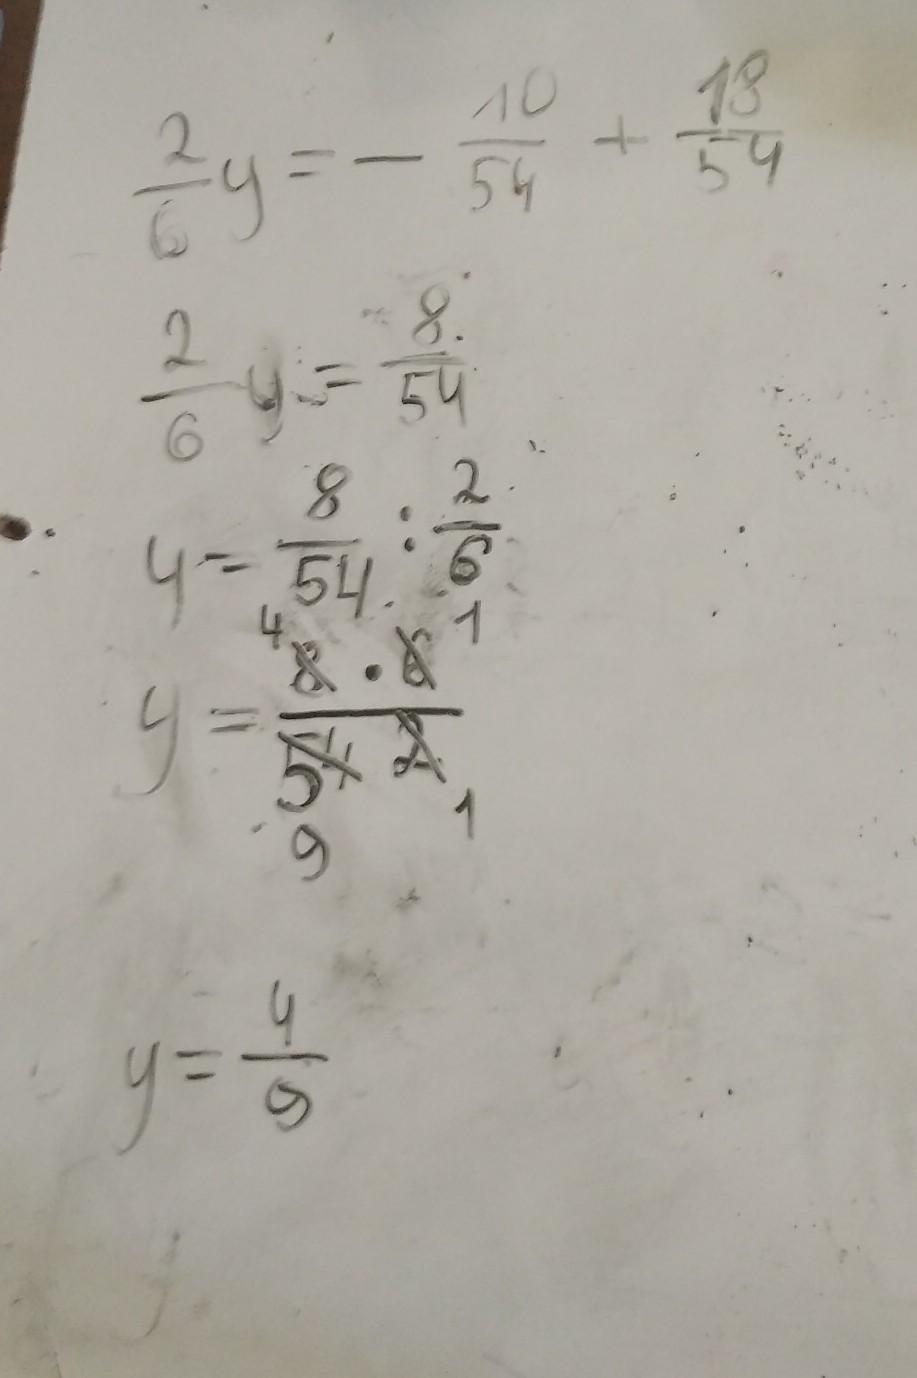 2/6 y = - 10/54 + 18/54
2/6 y = 8/54
y = 8/54 : 2/6
4 1
y = 8 · 6 / 54 2
9 1
y = 4/9